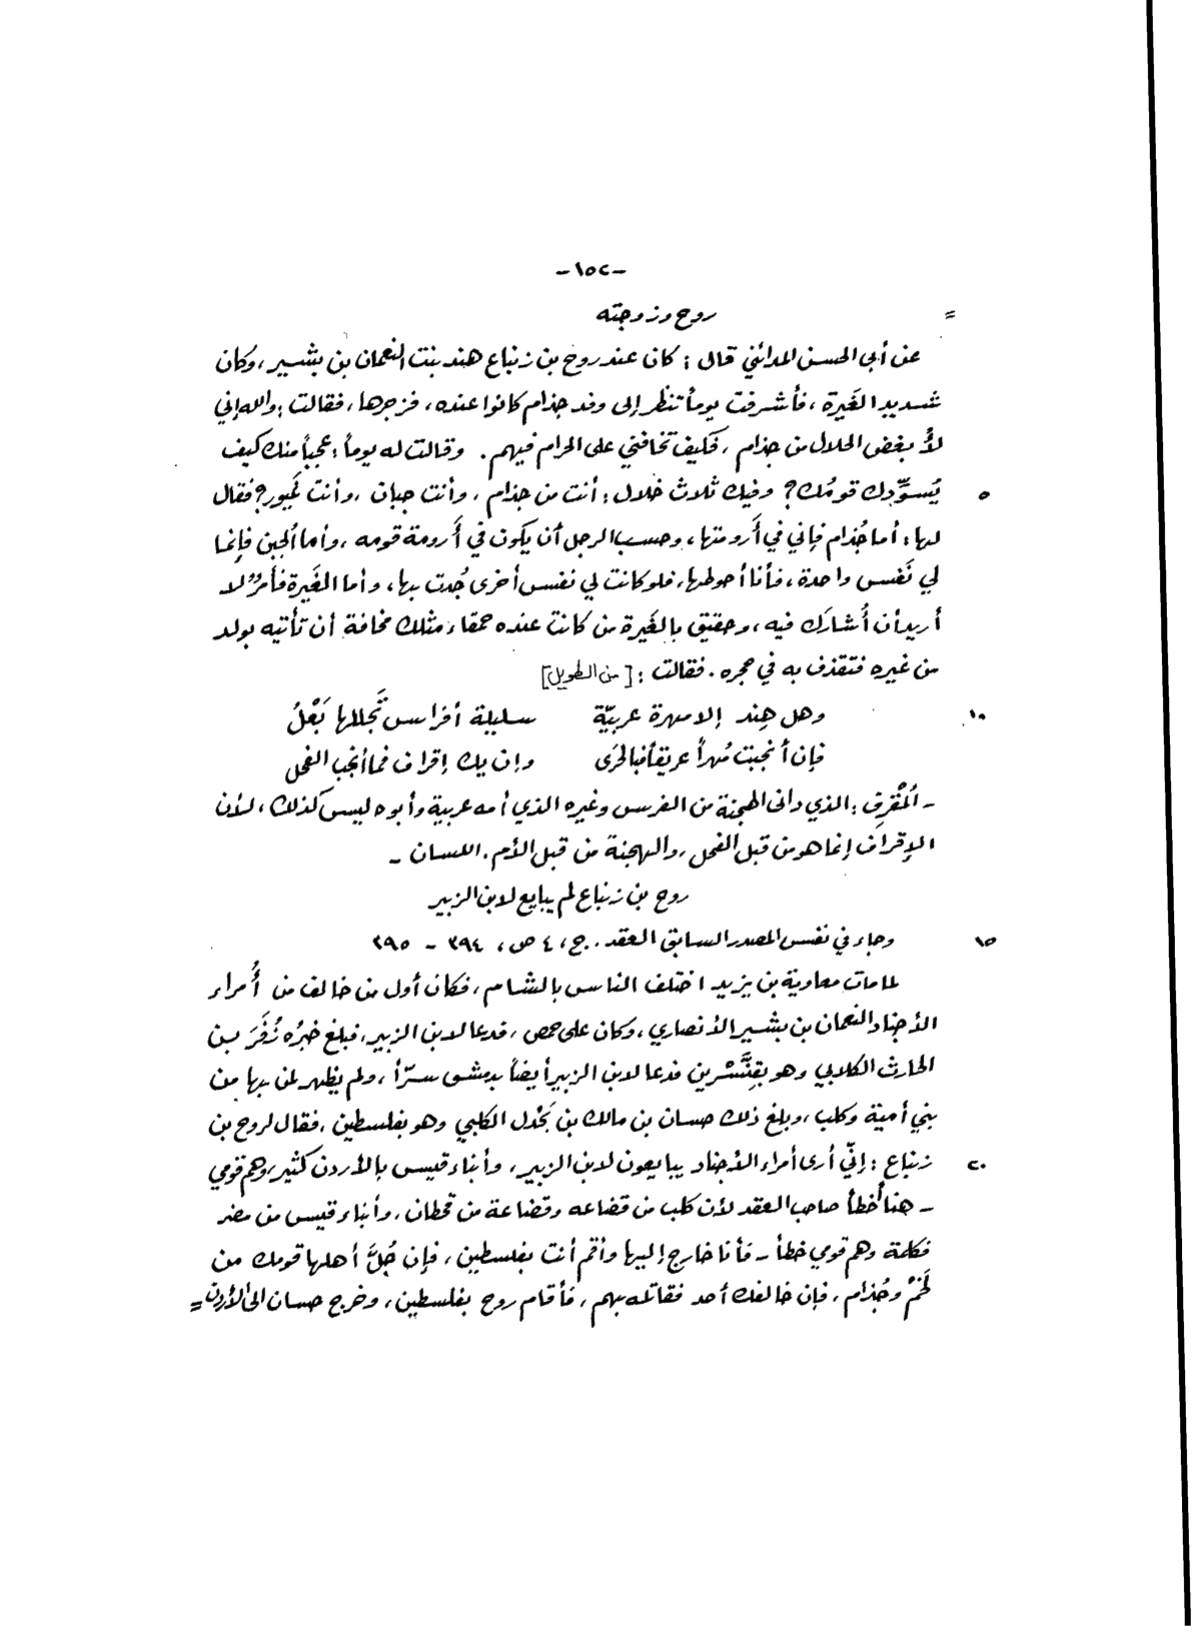 -١٥٢-
= روح وزوجته
عن أبي الحسن المدائني قال : كان عند روح بن زنباع هند بنت النعمان بن بشير ، وكان
شديد الغَيرة ، فأشرفت يوماً تنظر إلى وفد جذام كانوا عنده ، فزجرها ، فقالت : والله إني
لأُ بغض الحلال من جذام ، فكيف تخافني على الحرام فيهم . وقالت له يوماً : عجباً منك كيف
٥ يُسوِّدك قومُك ? وفيك ثلاث خلال : أنت من جذام ، وأنت جبان ، وأنت غَيور ? فقال
لها : أما جُذام فإني في أَرومتها ، وحسب الرجل أن يكون في أَرومة قومه ، وأما الجُبن فإنما
لي نَفس واحدة ، فأنا أحوطها ، فلو كانت لي نفس أخرى جُدت بها ، وأما الغَيرة فأمرٌ لا
أريد أن أُشارَك فيه ، وحقيق بالغَيرة من كانت عنده حمقاء مثلك مخافة أن تأتيه بولد
من غيره فتقذف به في حجره . فقالت : [ من الطويل ]
١٠ وهل هِند إلا مهرة عربيّة سليلة أفراس تَجللها بَغْلُ
فإن أنجبت مُهراً عريقاً فبالحَرى وإن يك إقراف فما أنجب الفحل
- المُقْرِف : الذي دانى الهجنة من الفرس وغيره الذي أمه عربية وأبوه ليس كذلك ، لأن
الإقراف إنما هو من قبل الفحل ، والهجنة من قبل الأم . اللسان -
روح بن زنباع لم يبايع لابن الزبير
١٥ وجاء في نفس المصدر السابق العقد . ج ، ٤ ص ، ٣٩٤ - ٣٩٥
لما مات معاوية بن يزيد اختلف الناس بالشام ، فكان أول من خالف من أُمراء
الأجناد النعمان بن بشير الأنصاري ، وكان على حمص ، فدعا لابن الزبير ، فبلغ خبرُه زُفَرَ بن
الحارث الكلابي وهو بقِنَّسْرين فدعا لابن الزبير أيضاً بدمشق سرّاً ، ولم يظهر لمن بها من
بني أمية وكلب ، وبلغ ذلك حسان بن مالك بن بَحْدل الكلبي وهو بفلسطين ، فقال لروح بن
٢٠ زنباع : إنّي أرى أمراء الأجناد يبايعون لابن الزبير ، وأبناء قيس بالأردن كثير ، وهم قومي
- هنا أخطأ صاحب العقد لأن كلب من قضاعه وقضاعة من قحطان ، وأبناء قيس من مضر
فكلمة وهم قومي خطأ - فأنا خارج إليها وأقم أنت بفلسطين ، فإن جُلَّ أهلها قومك من
لَخْمٌ وجُذام ، فإن خالفك أحد فقاتله بهم ، فأقام روح بفلسطين ، وخرج حسان الى الأردن =